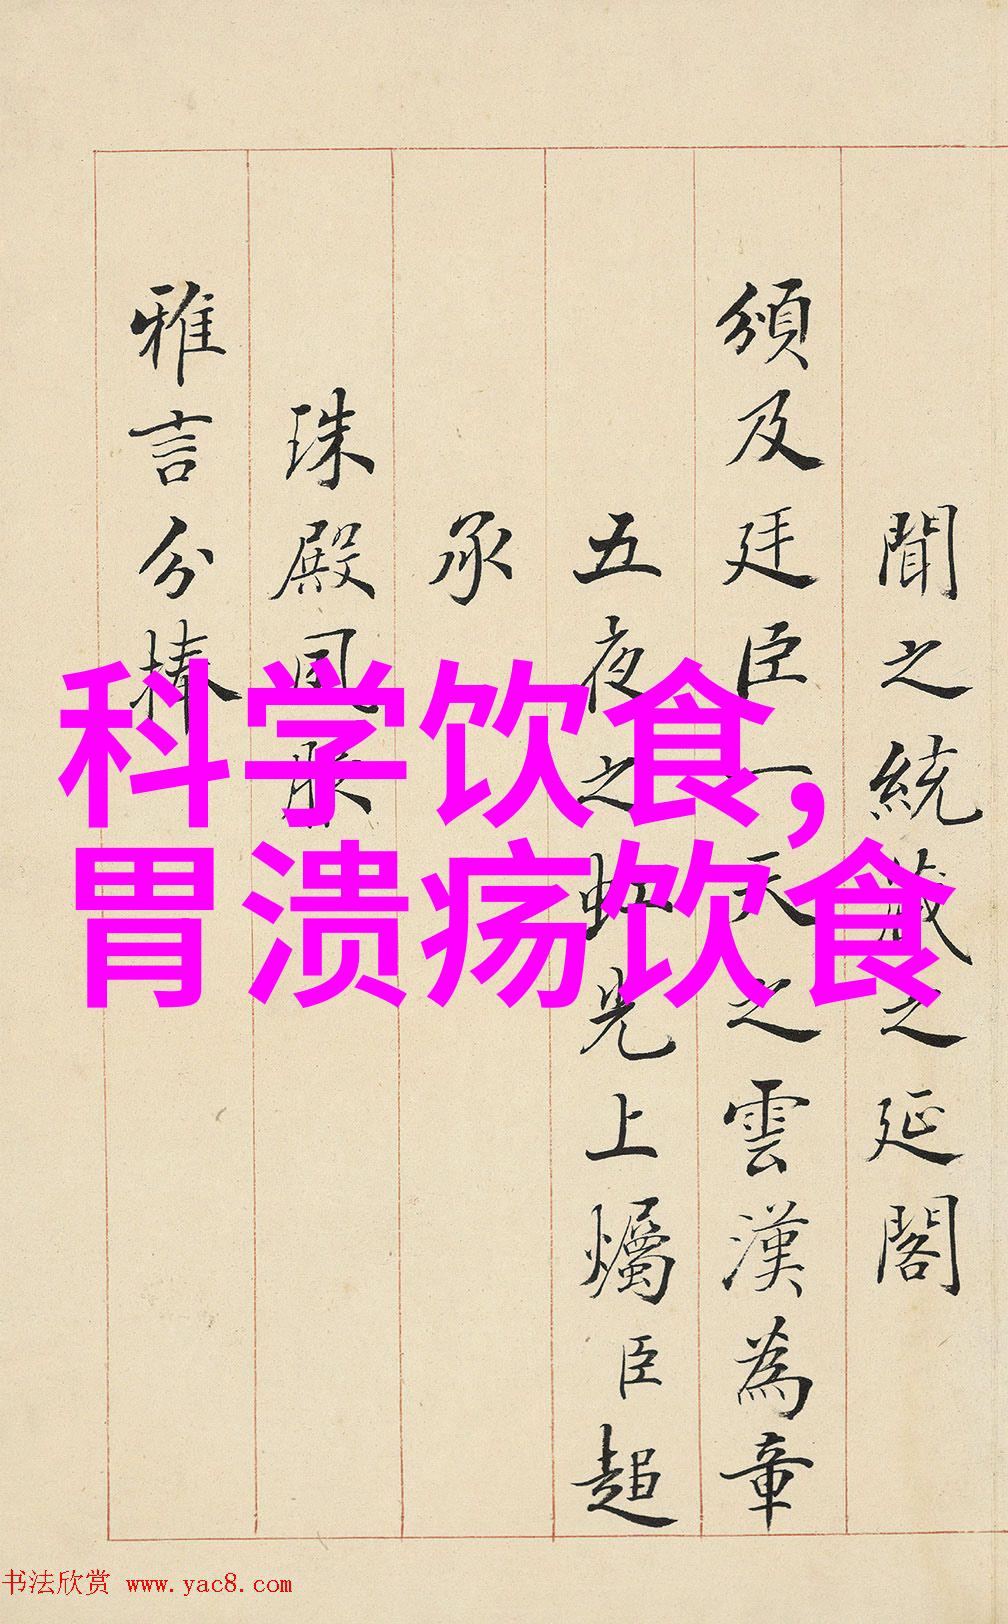 科学饮食,
胃溃疡饮食
聞之統藏之延閣
頒及廷臣一天之雲漢為章
五夜之虹光上爥臣超
承
珠殿
雅言分捧
书法欣赏 www.yac8.com